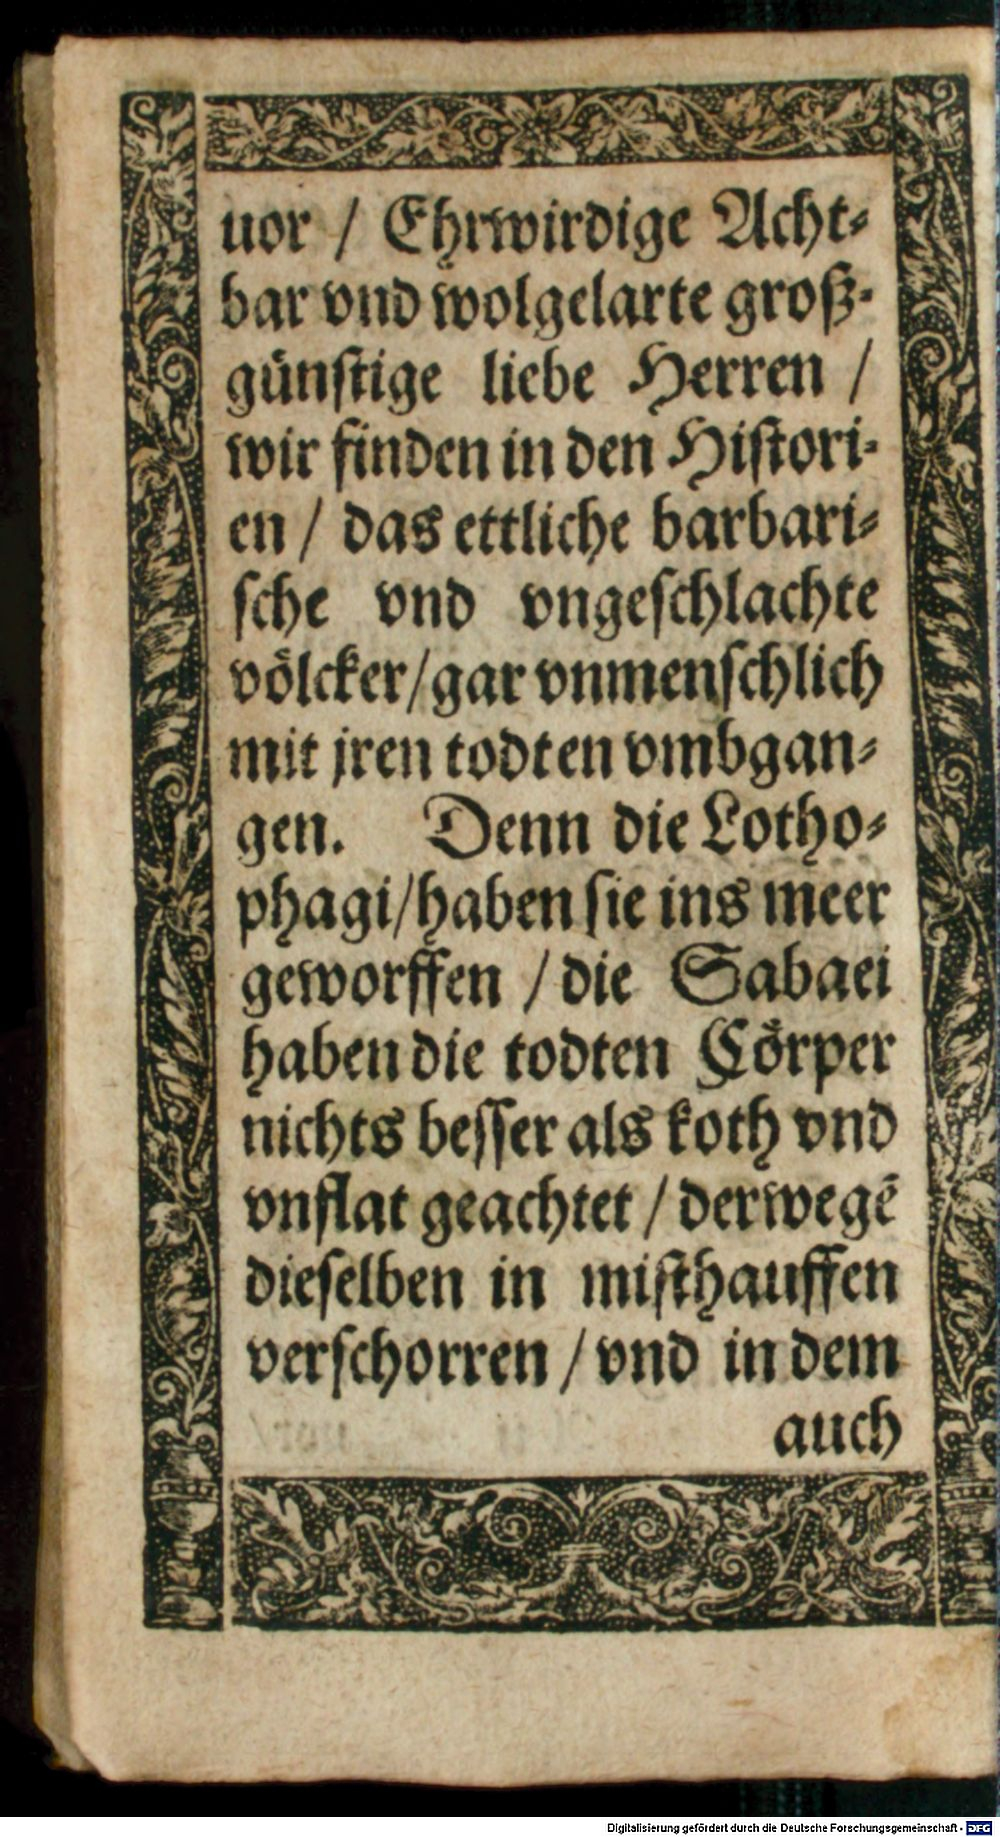 uor / Ehrwirdige Acht⸗
bar vnd wolgelarte groß⸗
günſtige liebe Herren /
wir finden in den Hiſtori⸗
en / das ettliche barbari⸗
ſche vnd vngeſchlachte
völcker / gar vnmenſchlich
mit jren todten vmbgan⸗
gen. Denn die Lotho⸗
phagi / haben ſie ins meer
geworffen / die Sabaei
haben die todten Cörper
nichts beſſer als koth vnd
vnflat geachtet / derwegẽ
dieſelben in miſthauffen
verſchorren / vnd in dem
auch
Digitalisierung gefördert durch die Deutsche Forschungsgemeinschaft - DFG